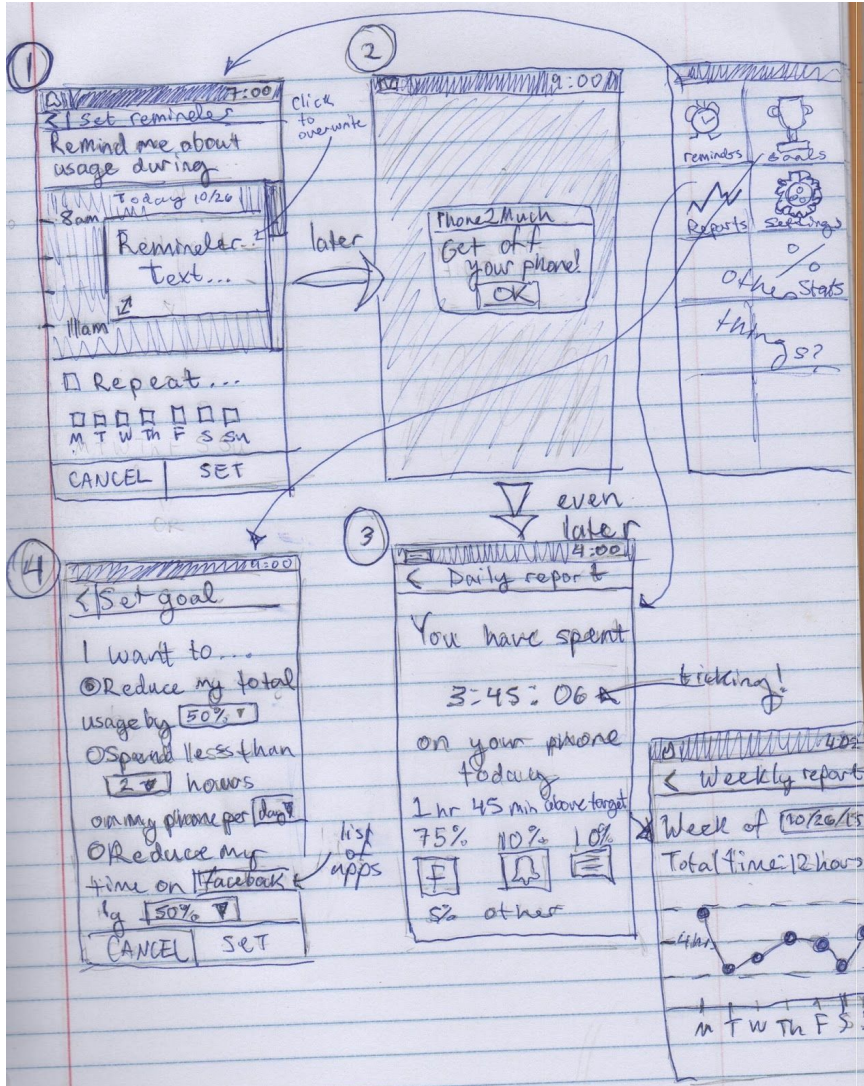 1
7:00
< Set reminder
Remind me about
usage during
Today 10/26
8am
Reminder..
Text...
11am
Repeat...
M T W Th F S Su
CANCEL SET
click
to
overwrite
later
2
9:00
Phone2Much
Get off
your phone!
OK
reminders Goals
Reports Settings
Other Stats
things?
even
later
3
4:00
< Daily report
You have spent
3:45:06
ticking!
on your phone
today
1 hr 45 min above target
75% 10% 10%
F
5% other
4
9:00
< Set goal
I want to...
Reduce my total
usage by 50%
Spend less than
2 hours
on my phone per day
Reduce my
time on Facebook
by 50%
CANCEL SET
list
of
apps
< Weekly report
Week of 10/26/15
Total time: 12 hours
4hr
M T W Th F S